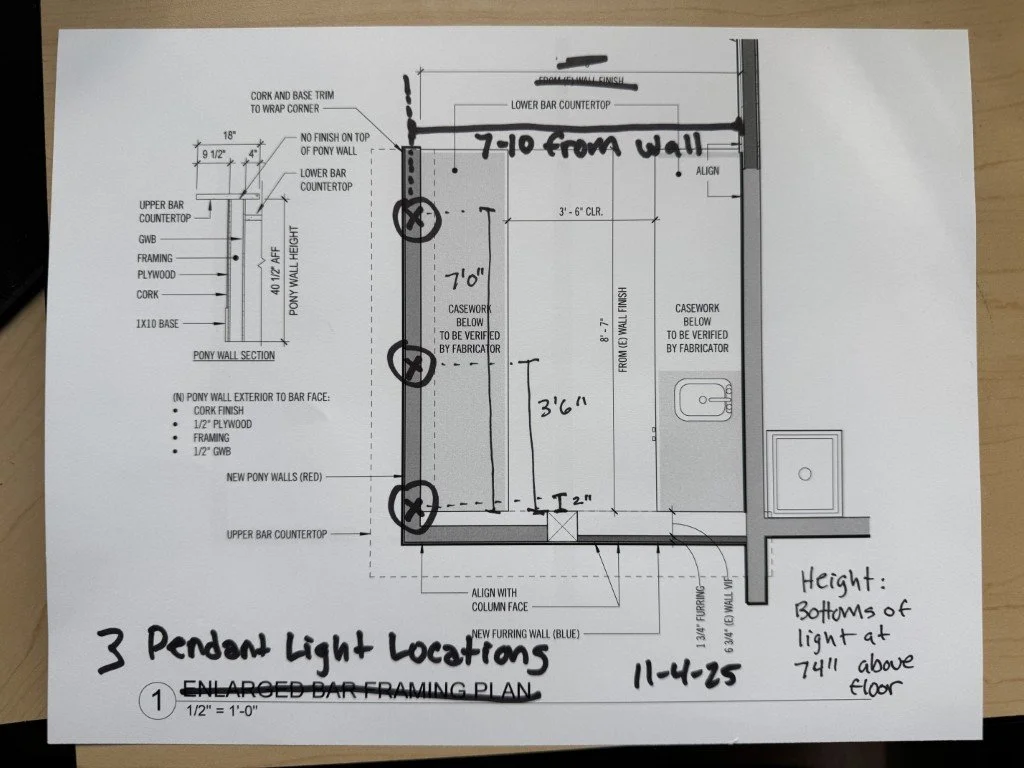 FROM (E) WALL FINISH
CORK AND BASE TRIM
TO WRAP CORNER
LOWER BAR COUNTERTOP
7-10 from wall
18"
9 1/2"
4"
NO FINISH ON TOP
OF PONY WALL
LOWER BAR
COUNTERTOP
ALIGN
UPPER BAR
COUNTERTOP
GWB
FRAMING
PLYWOOD
CORK
1X10 BASE
40 1/2" AFF
PONY WALL HEIGHT
PONY WALL SECTION
3' - 6" CLR.
7'0"
CASEWORK
BELOW
TO BE VERIFIED
BY FABRICATOR
8' - 7"
FROM (E) WALL FINISH
CASEWORK
BELOW
TO BE VERIFIED
BY FABRICATOR
3'6"
(N) PONY WALL EXTERIOR TO BAR FACE:
• CORK FINISH
• 1/2" PLYWOOD
• FRAMING
• 1/2" GWB
NEW PONY WALLS (RED)
2"
UPPER BAR COUNTERTOP
ALIGN WITH
COLUMN FACE
NEW FURRING WALL (BLUE)
1 3/4" FURRING
6 3/4" (E) WALL VIF
Height:
Bottoms of
light at
74" above
floor
3 Pendant Light Locations
11-4-25
1
ENLARGED BAR FRAMING PLAN
1/2" = 1'-0"